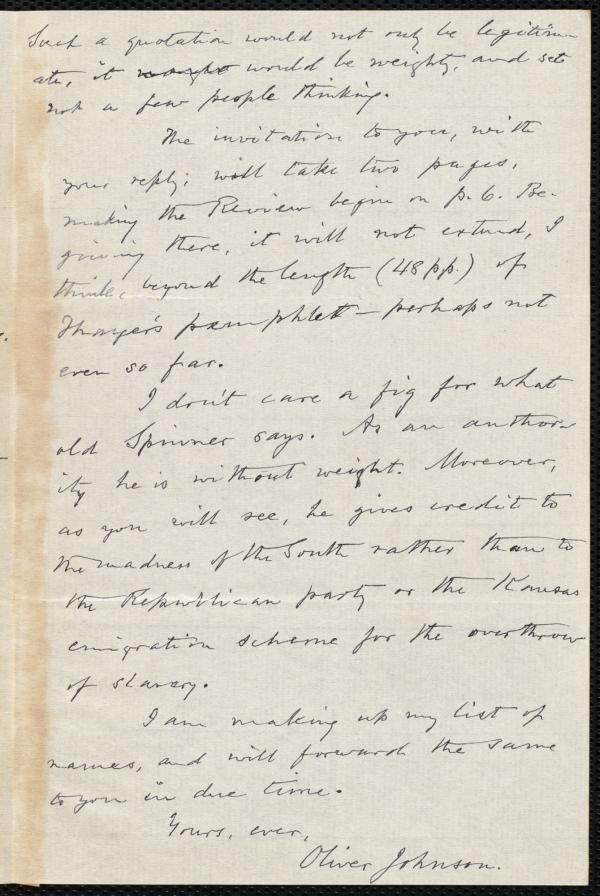 Such a quotation would not only be legitim-
ate, it would be weighty, and set
not a few people thinking.
The invitation to you, with
your reply, will take two pages,
making the Review begin on p. 6. Be-
ginning there, it will not extend, I
think, beyond the length (48 pp.) of
Thayer's pamphlet — perhaps not
even so far.
I don't care a fig for what
old Spinner says. As an author-
ity he is without weight. Moreover,
as you will see, he gives credit to
the madness of the South rather than to
the Republican party or the Kansas
emigration scheme for the overthrow
of slavery.
I am making up my list of
names, and will forward the same
to you in due time.
Yours, ever,
Oliver Johnson.